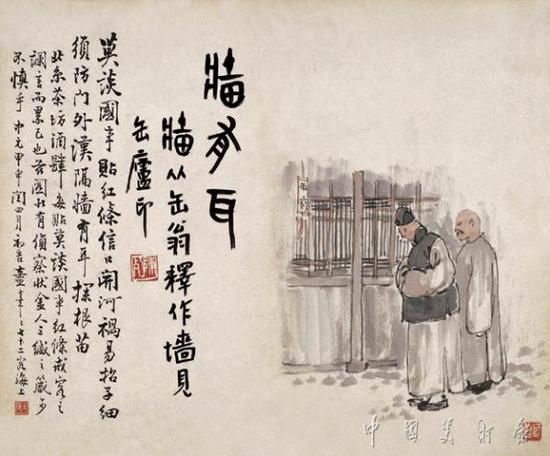 牆有耳
牆从缶翁釋作墻見
缶廬印
莫談國事貼紅條信口開河禍易招子細
須防門外漢隔牆有耳探根苗
北京茶坊酒肆每貼莫談國事紅條戒客之
讕言而累己也茲圖狀有偵察狀金人三緘之箴可
不慎乎 中元甲申閏四月初吉 七十二客海上
中國美術館